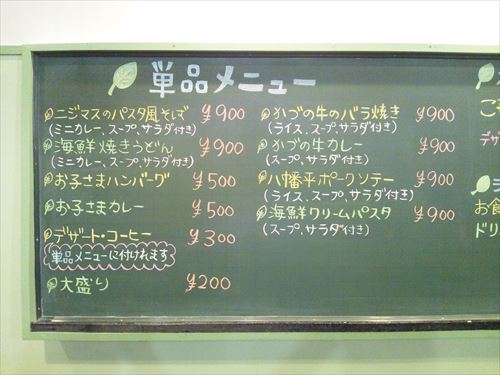 単品メニュー
ニジマスのパスタ風そば ¥900
(ミニカレー、スープ、サラダ付き)
海鮮焼きうどん ¥900
(ミニカレー、スープ、サラダ付き)
お子さまハンバーグ ¥500
お子さまカレー ¥500
デザート・コーヒー ¥300
単品メニューに付けれます
大盛り ¥200
かづの牛のバラ焼き ¥900
(ライス、スープ、サラダ付き)
かづの牛カレー ¥900
(スープ、サラダ付き)
八幡平ポークソテー ¥900
(ライス、スープ、サラダ付き)
海鮮クリームパスタ ¥900
(スープ、サラダ付き)
ご
デザ
お食
ドリ